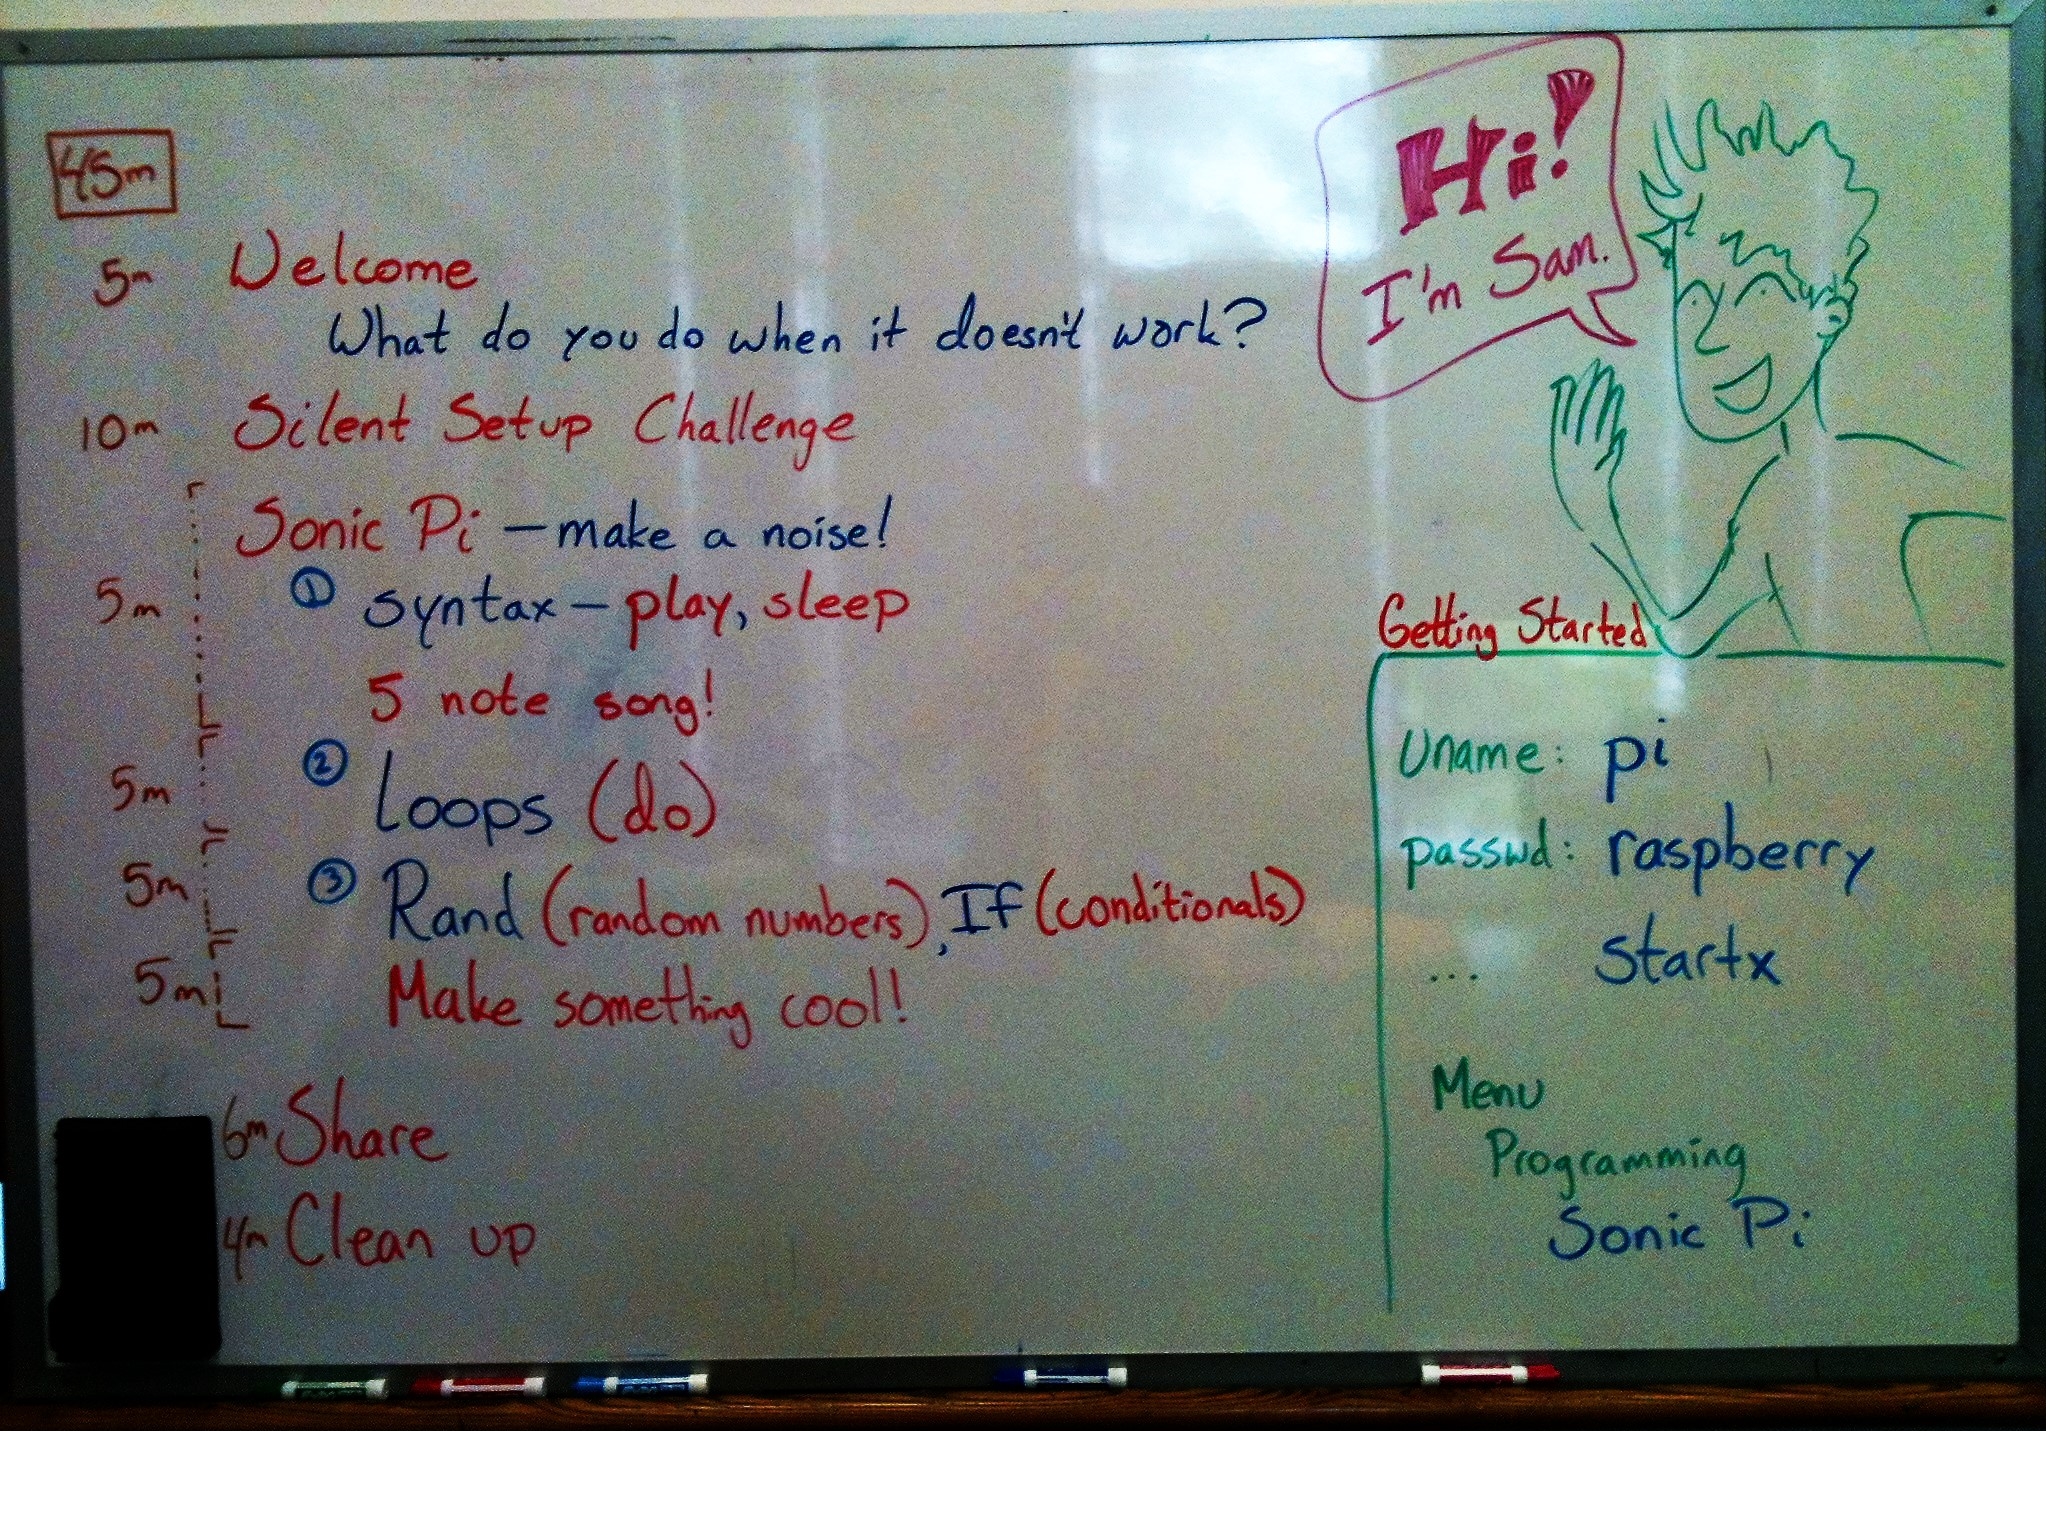 45m
5m Welcome
What do you do when it doesn't work?
10m Silent Setup Challenge
Sonic Pi – make a noise!
5m ① syntax – play, sleep
5 note song!
5m ② Loops (do)
5m ③ Rand (random numbers), If (conditionals)
5m Make something cool!
6m Share
4m Clean up
Hi!
I'm Sam.
Getting Started
Uname: pi
passwd: raspberry
... startx
Menu
Programming
Sonic Pi